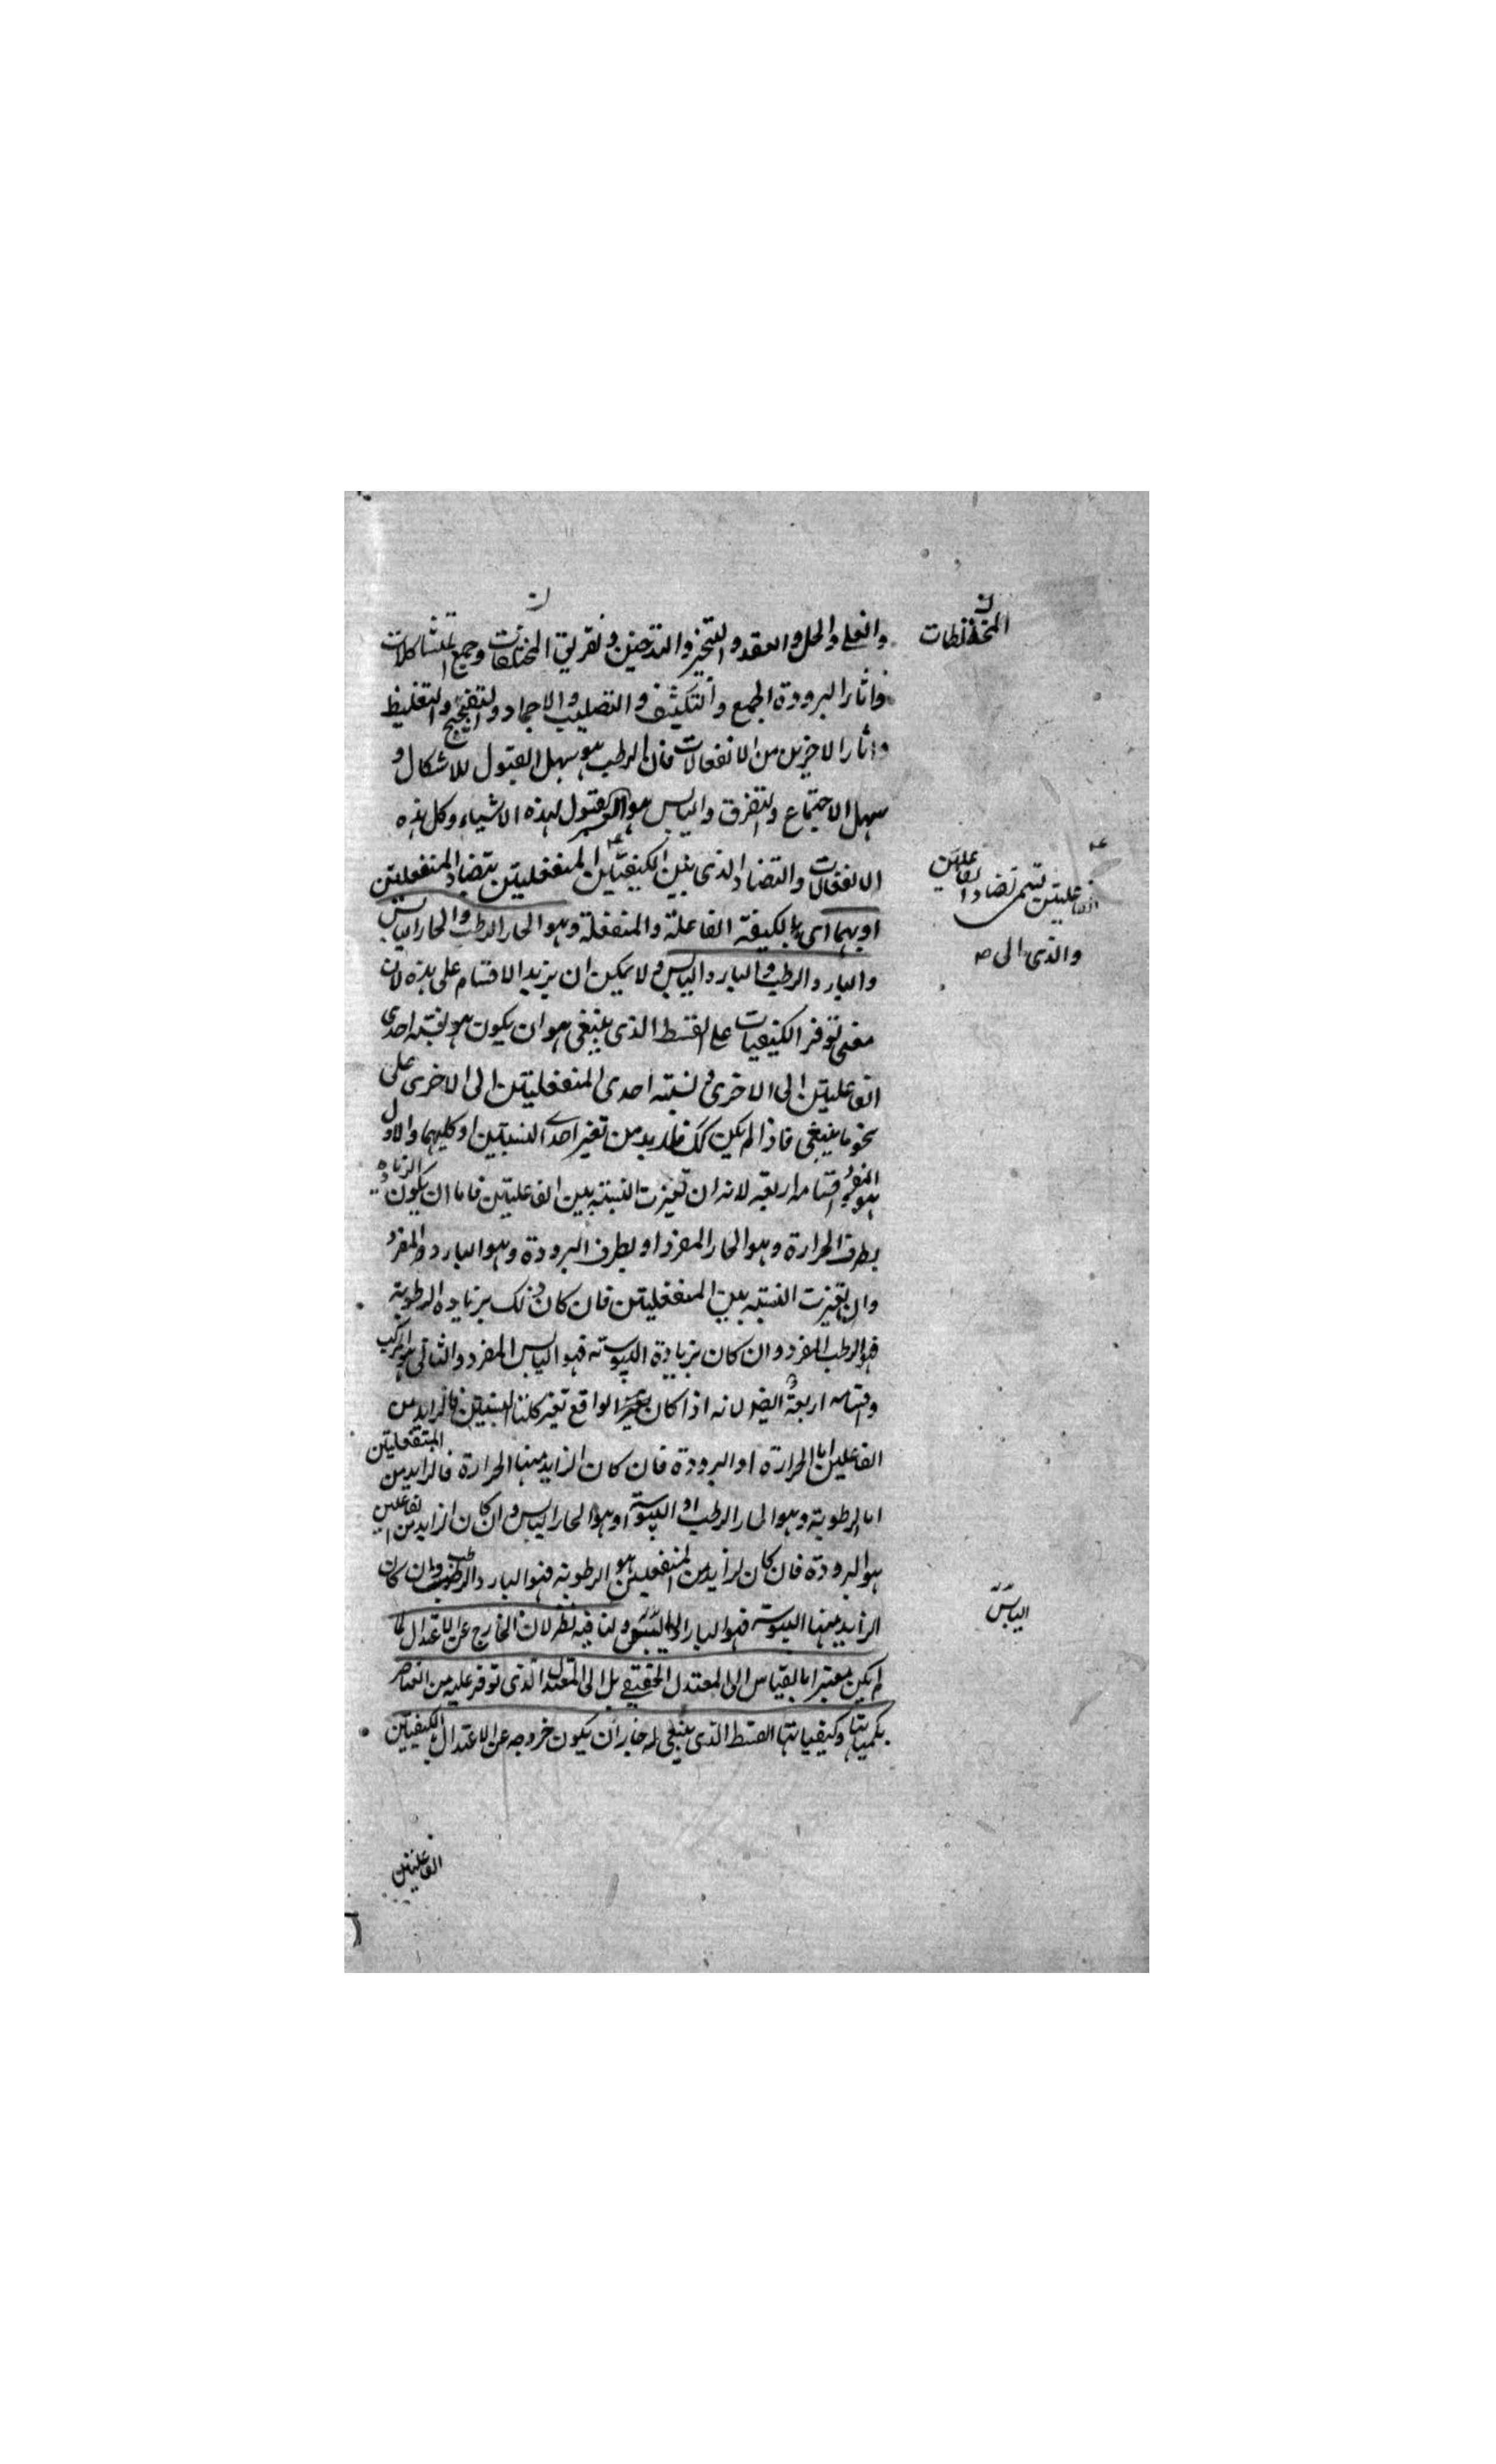 والغلي والحل والعقد والتبخير والتدخين وتفريق المختلفات وجمع المتشاكلات
المختلطات
واثار البرودة الجمع والتكثيف والتصليب والاجماد والتفجيج والتغليظ
واثار الاخرين من الانفعالات فان الرطب هو سهل القبول للاشكال و
سهل الاجتماع والتفرق واليابس هو القبول لهذه الاشياء وكل هذه
الانفعالات والتضاد الذى بين الكيفيتين المنفعليتين بتضاد المنفعليتين
الفاعليتين تسمى تضاد الفاعليتين
والذى الى
او بهما اى بالكيفية الفاعلة والمنفعلة وهو الحار الرطب والحار اليابس
والبارد الرطب والبارد اليابس ولا يمكن ان يزيد الاقسام على هذه لان
معنى توفر الكيفيات على القسط الذى ينبغى هو ان يكون هو نسبة احدى
الفاعليتين الى الاخرى و نسبة احدى المنفعليتين الى الاخرى على
نحو ما ينبغى فاذا لم يكن كك فلا بد من تغير احدى النسبتين او كليهما والاول
هو المفرد اقسامه اربعة لانه ان تغيرت النسبة بين الفاعليتين فاما ان يكون الزيادة
بطرف الحرارة وهو الحار المفرد او بطرف البرودة وهو البارد المفرد
وان تغيرت النسبة بين المنفعليتين فان كان ذلك بزيادة الرطوبة
فهو الرطب المفرد وان كان بزيادة اليبوسة فهو اليابس المفرد والثانى هو المركب
واقسامه اربعة ايضا لانه اذا كان الواقع تغير كلتا النسبتين فالزايد من
الفاعلين اما الحرارة او البرودة فان كان الزايد منها الحرارة فالزايد من المنفعليتين
اما الرطوبة وهو الحار الرطب او اليبوسة وهو الحار اليابس وان كان الزايد من الفاعلين
هو البرودة فان كان الزايد من المنفعلين هو الرطوبة فهو البارد الرطب وان كان
الزايد منها اليبوسة فهو البارد اليابس ولنا فيه نظر لان الخارج عن الاعتدال لما
اليابس
لم يكن معتبرا بالقياس الى المعتدل الحقيقى بل الى المعتدل الذى توفر عليه من العناصر
بكمياتها وكيفياتها القسط الذى ينبغى له جاز ان يكون خروجه عن الاعتدال بالكيفيتين
الفاعليتين